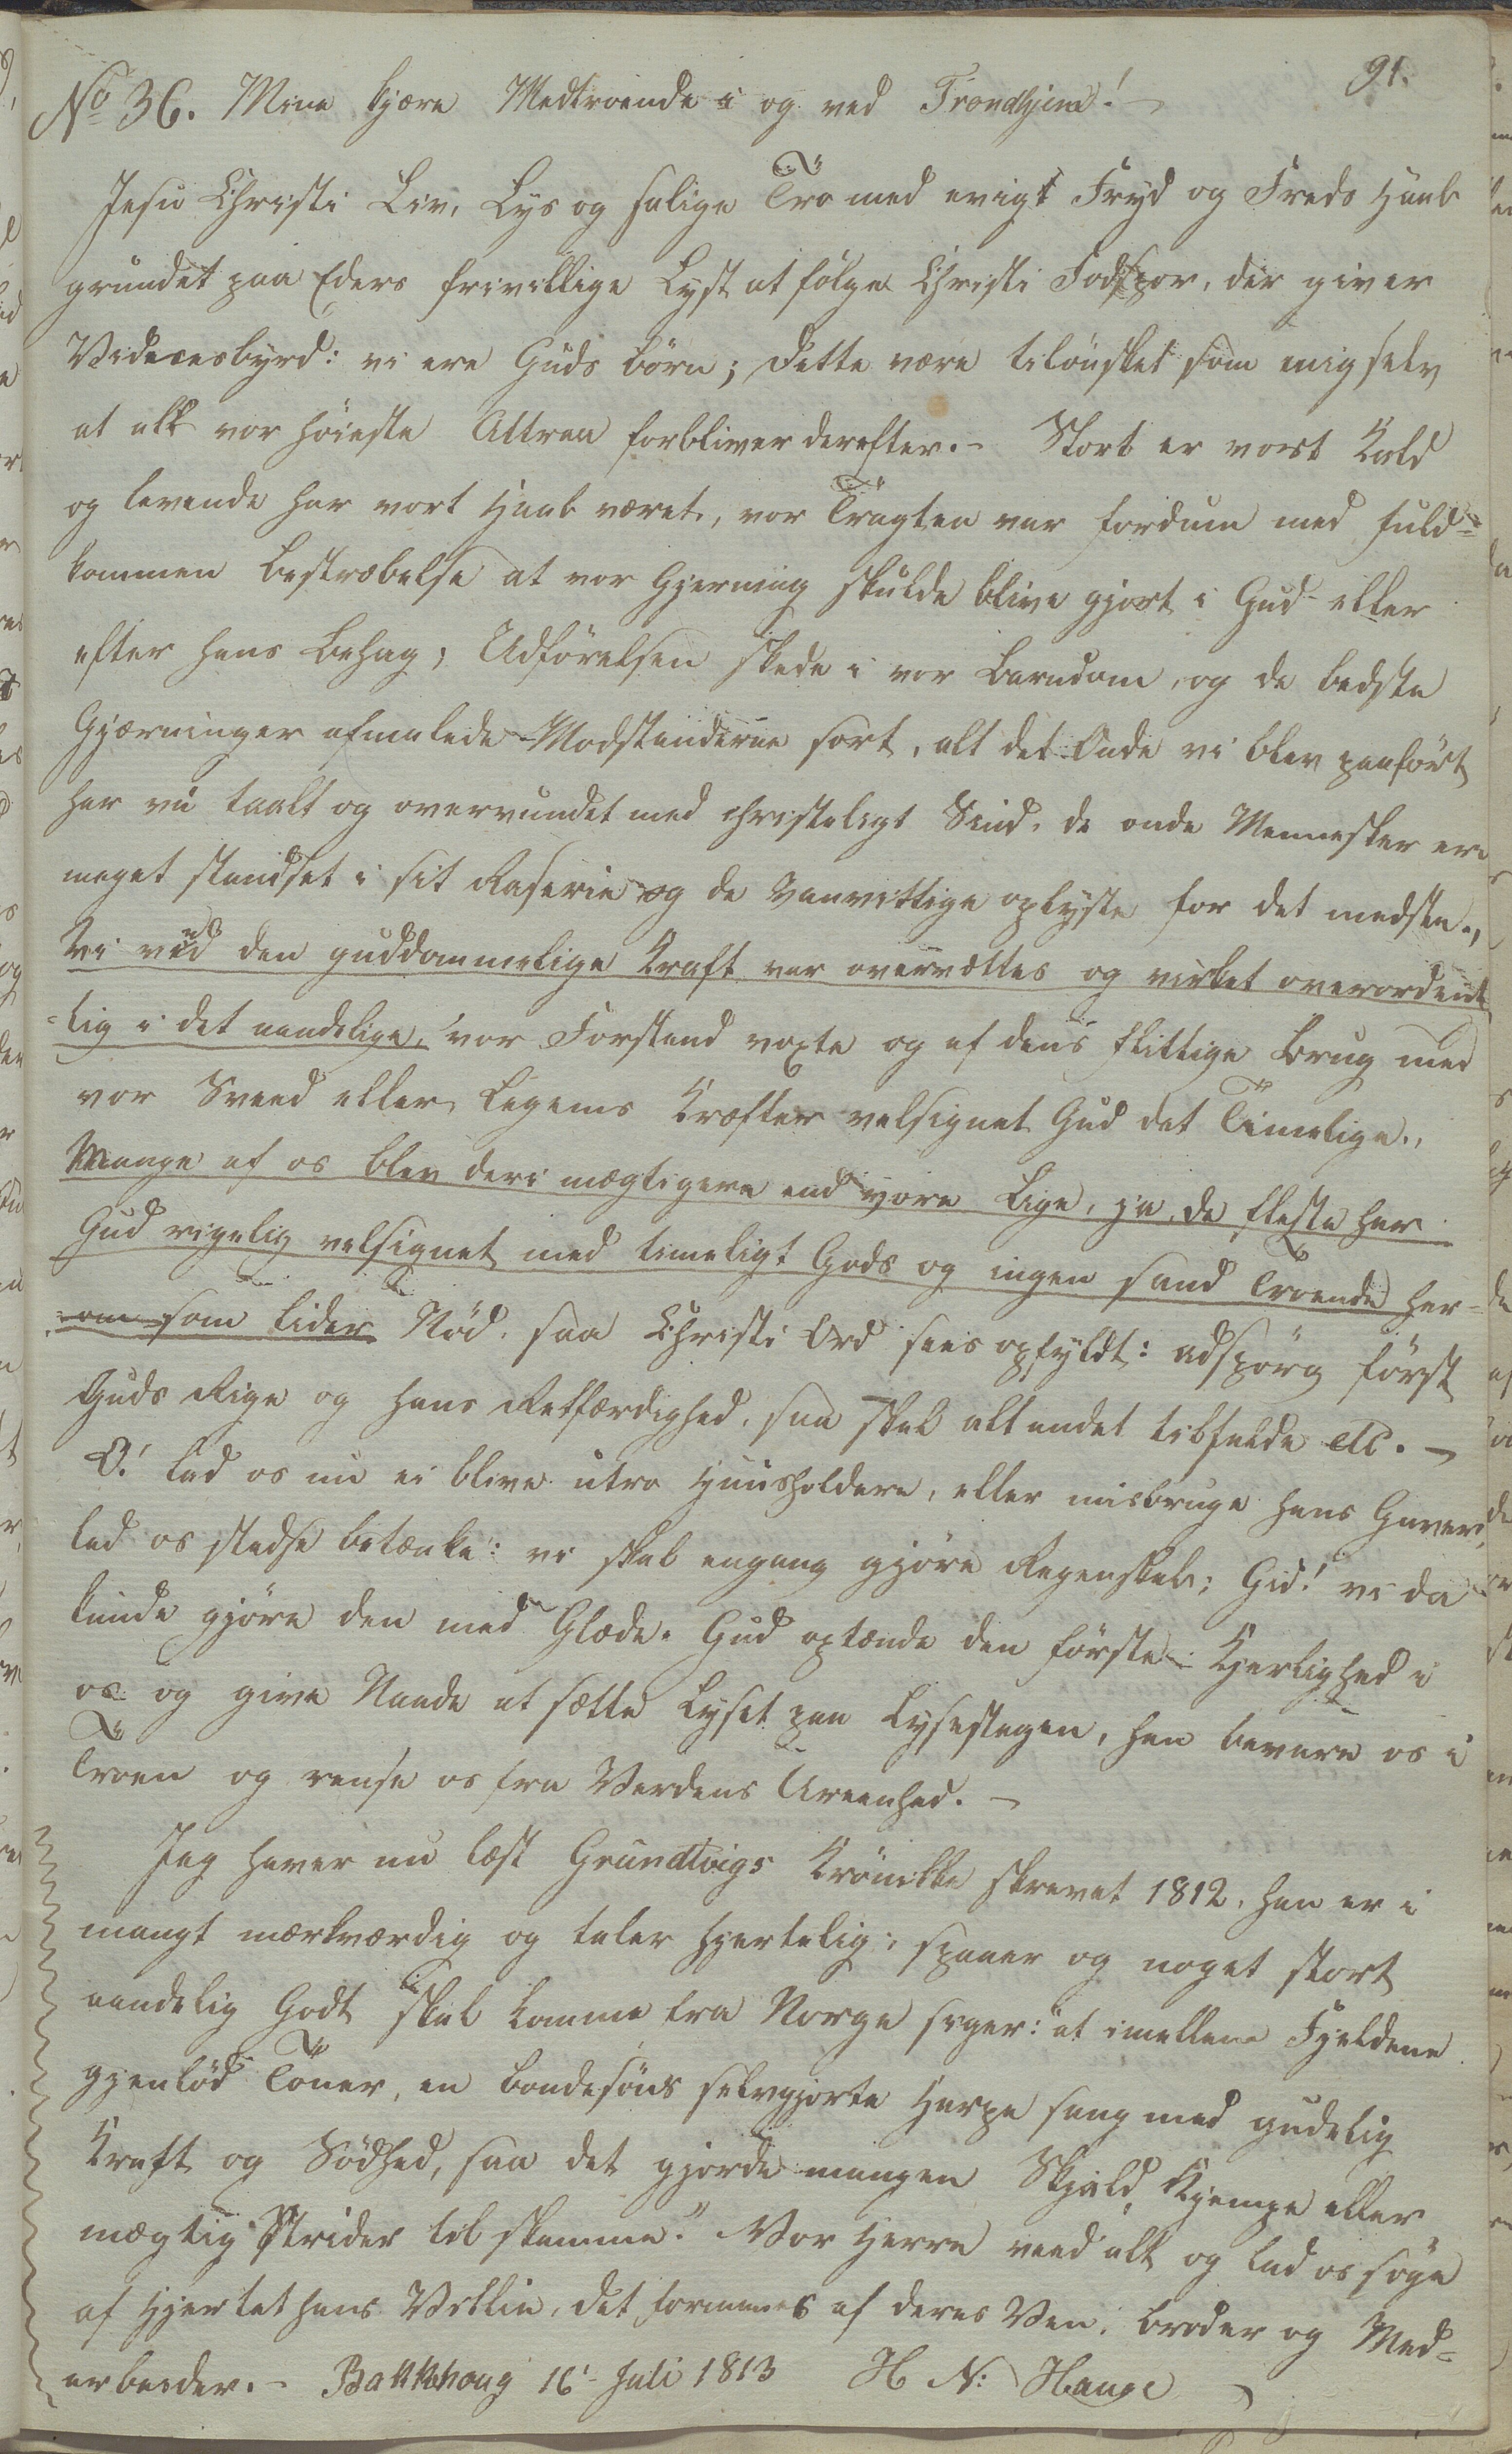 91.
No 36. Mine kjære Medtroende i og ved Trondhjem! –
Jesu Christi Liv, Lys og salige Tro med evigt Fryd og Freds Haab
grundet paa Eders frivillige Lyst at følge Christi Fodspor, der giver
Vidnesbyrd: vi ere Guds børn; dette være tilønsket som mig selv
at alt vor høieste Attraa forbliver derefter. – Stort er vort Kald
og levende har vort Haab været, vor Tragten var fordum med fuld=
kommen bestræbelse at vor Gjerning skulde blive gjort i Gud eller
efter hans behag; Udførelsen skede i vor barndom, og de bedste
Gjærninger afmalede Modstanderne sort, alt det Onde vi blev paaført
har vi taalt og overvundet med christeligt Sind, de onde Mennesker ere
meget standset i sit Raserie og de Vanvittige oplyste for det meste.,
Vi ved den guddommelige Kraft var overvættes og virket overordent
=lig i det aandelige, vor Forstand voxte og af dens flittige brug med
vor Sveed eller Legems Kræfter velsignet Gud det Timelige.,
Mange af os blev deri mægtigere end vore Lige, ja, de fleste har
Gud rigelig velsignet med timeligt Gods og ingen sand Troende her=
=om som lider Nød, saa Christi Ord sees opfyldt: adspørg først
Guds Rige og hans Retfærdighed, saa skal alt andet tilfalde etc. –
O! lad os nu ei blive utro Huusholdere, eller misbruge hans Gaver,
lad os stedse betænke: vi skal engang gjøre Regenskab; Gid! vi da
kunde gjøre den med Glæde. Gud optænde den første Kjerlighed i
os og give Naade at sætte Lyset paa Lysestagen, han bevare os i
Troen og rense os fra Verdens Ureenhed. –
Jeg haver nu læst Grundtvigs Krønikke skrevet 1812, han er i
mangt mærkværdig og taler hjertelig, spaaer og noget stort
aandelig Godt skal komme fra Norge siger: "at imellem Fjeldene
gjenlød Toner, en bondesøns selvgjorte Harpe sang med gudelig
Kraft og Sødhed, saa det gjorde mangen Skjald, Kjempe eller
mægtig Strider til skamme." Vor Herre veed alt og lad os søge
af Hjertet hans Villie, det formanes af deres Ven, broder og Med=
arbeider. – Bakkehaug 16' Juli 1813 H N: Hauge